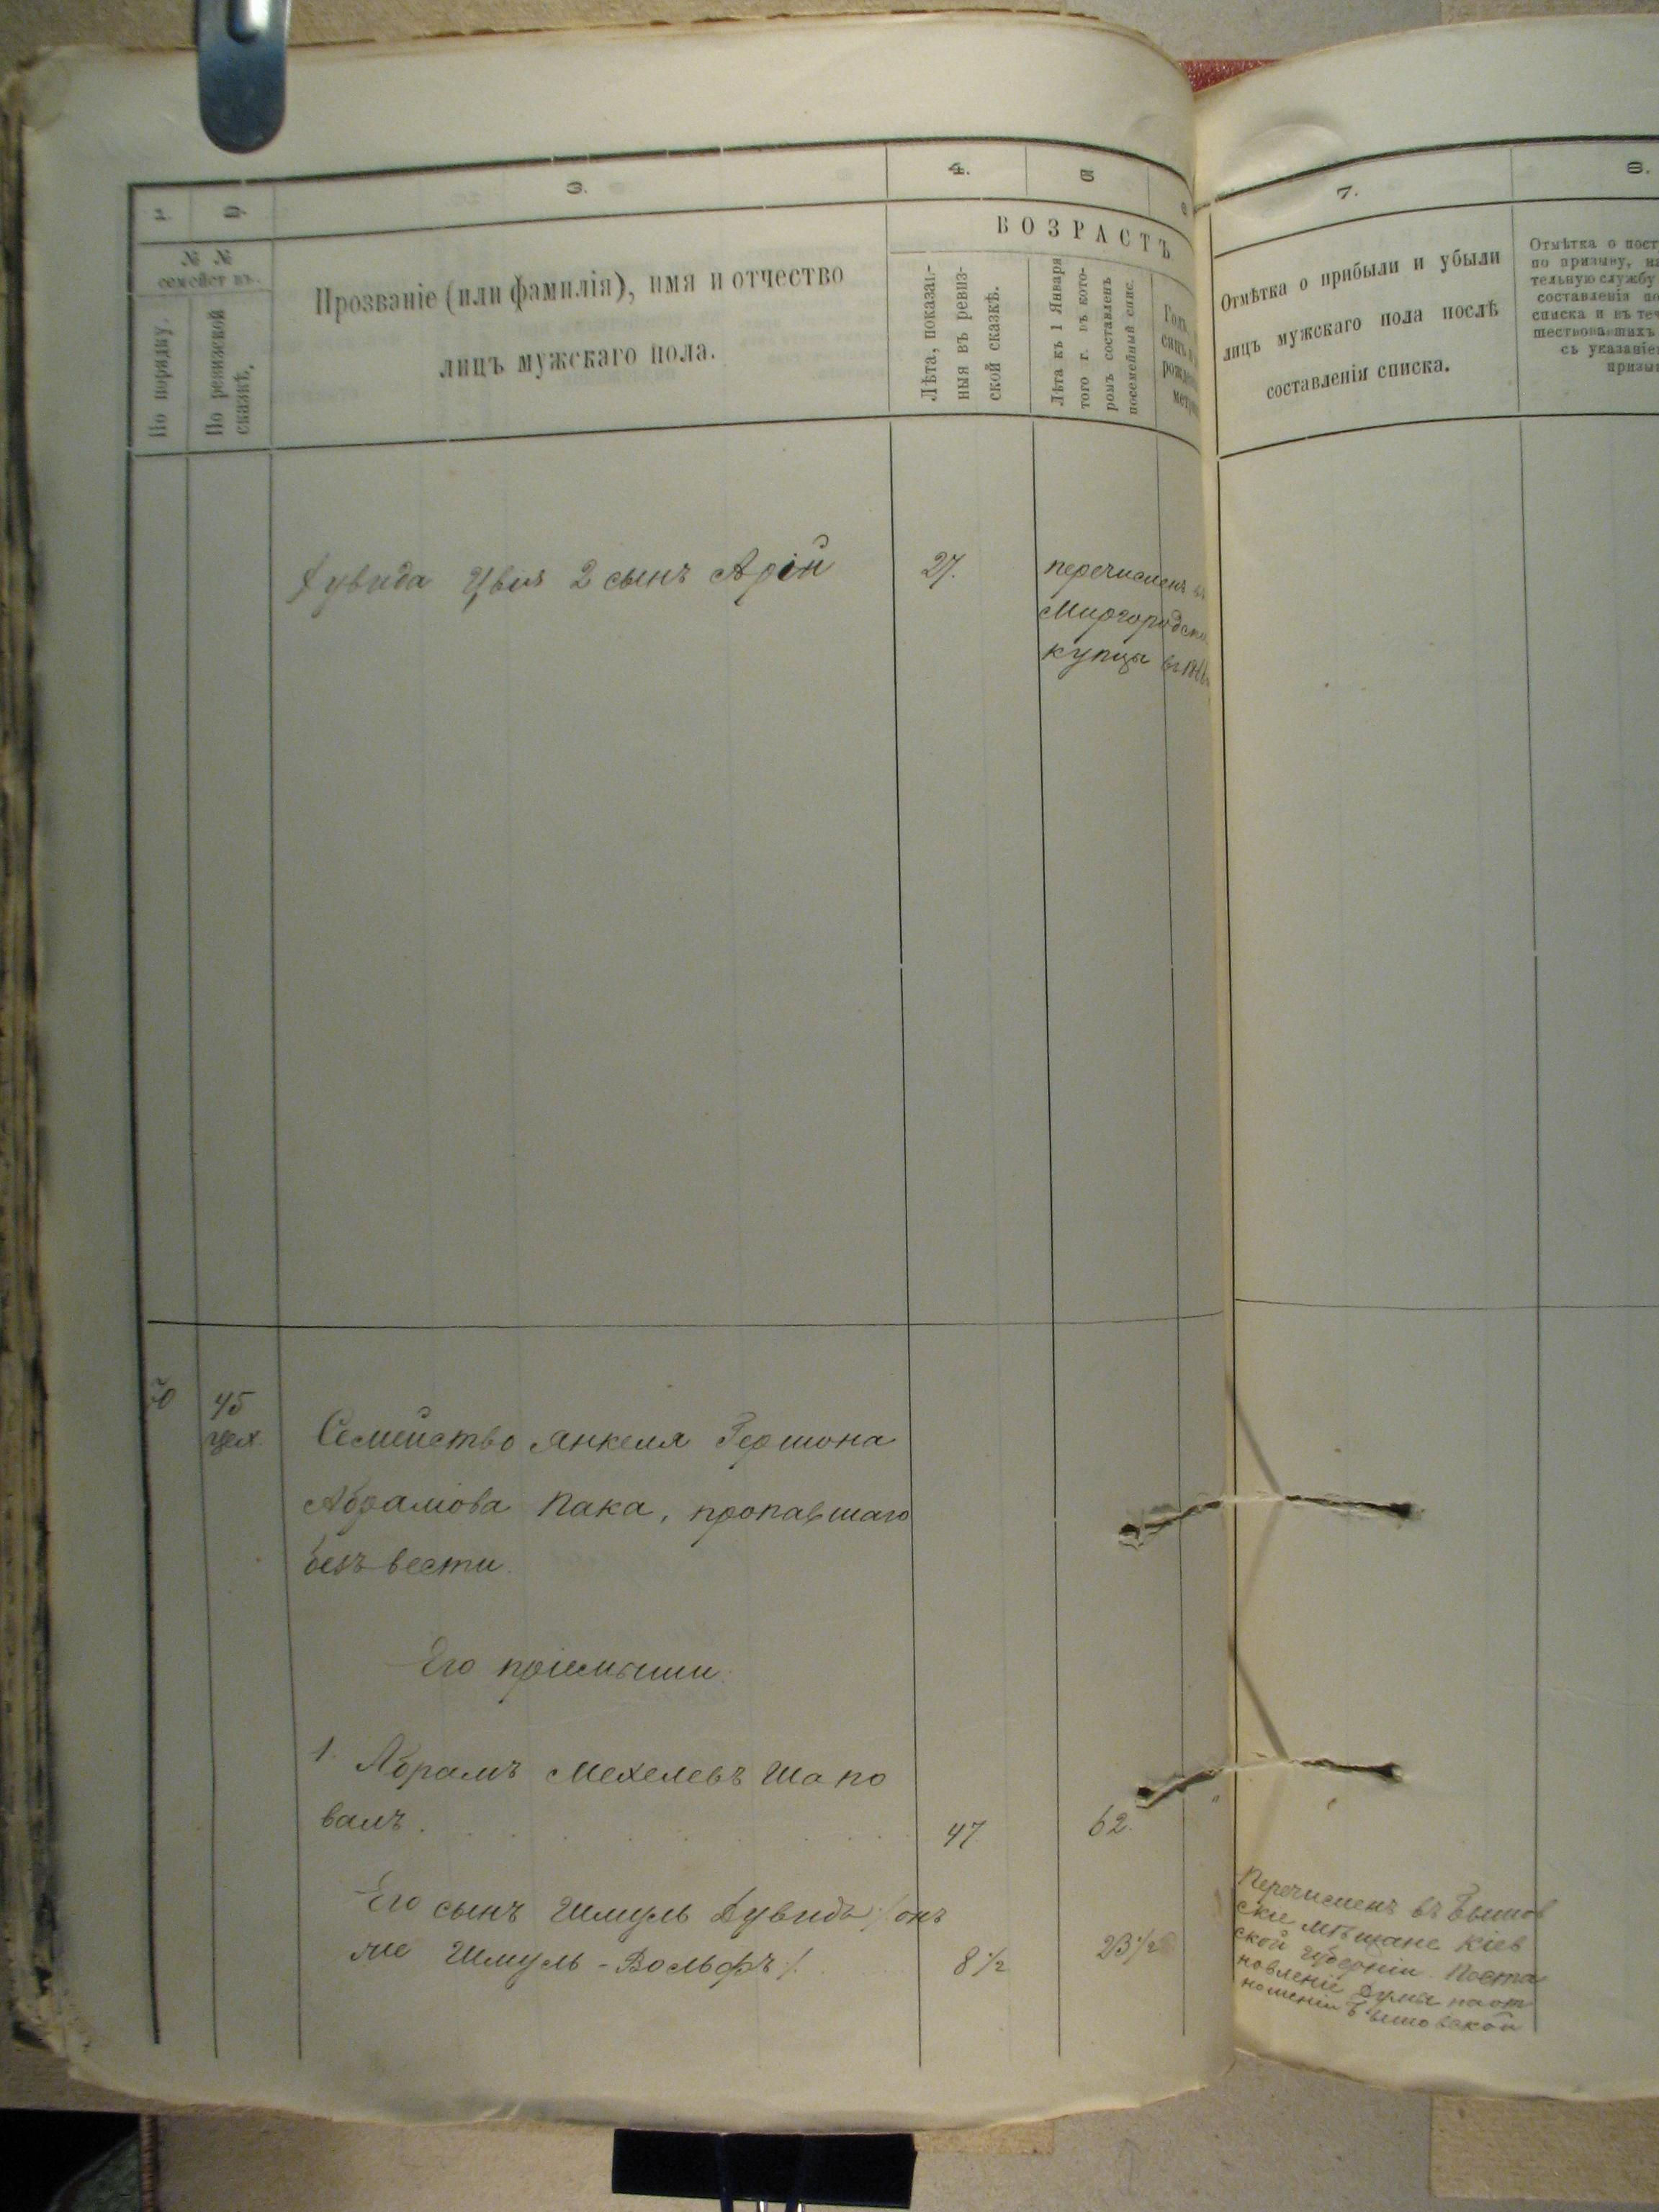 1.
2.
3.
4.
5
7.
8.
№ №
семействъ.
По порядку.
По ревизской
сказкѣ.
Прозваніе (или фамилія), имя и отчество
лицъ мужскаго пола.
ВОЗРАСТЪ
Лѣта, показан-
ныя въ ревиз-
ской сказкѣ.
Лѣта къ 1 Января
того г. въ кото-
ромъ составленъ
посемейный спис.
Отмѣтка о прибыли и убыли
лицъ мужскаго пола послѣ
составленія списка.
Отмѣтка о пост
по призыву, на
тельную службу
составленія по
списка и въ теч
шествовавшихъ
съ указаніе
призы
Дувида Цвія 2 сынъ Арій
27.
перечисленъ въ
Миргородск
купцы
45
цех.
Семейство Янкеля Гершона
Абрамова Пака, пропавшаго
безъ вести.
Его пріемыши.
1. Абрамъ Мехелевъ Шапо
валъ.
47
62.
Его сынъ Шмуль Дувидъ /: онъ
же Шмуль-Вольфъ :/.
8 1/2
23 1/2
Перечисленъ въ
скіе мѣщане Кіев
ской губерніи. Поста
новленіе Думы по от
ношенію